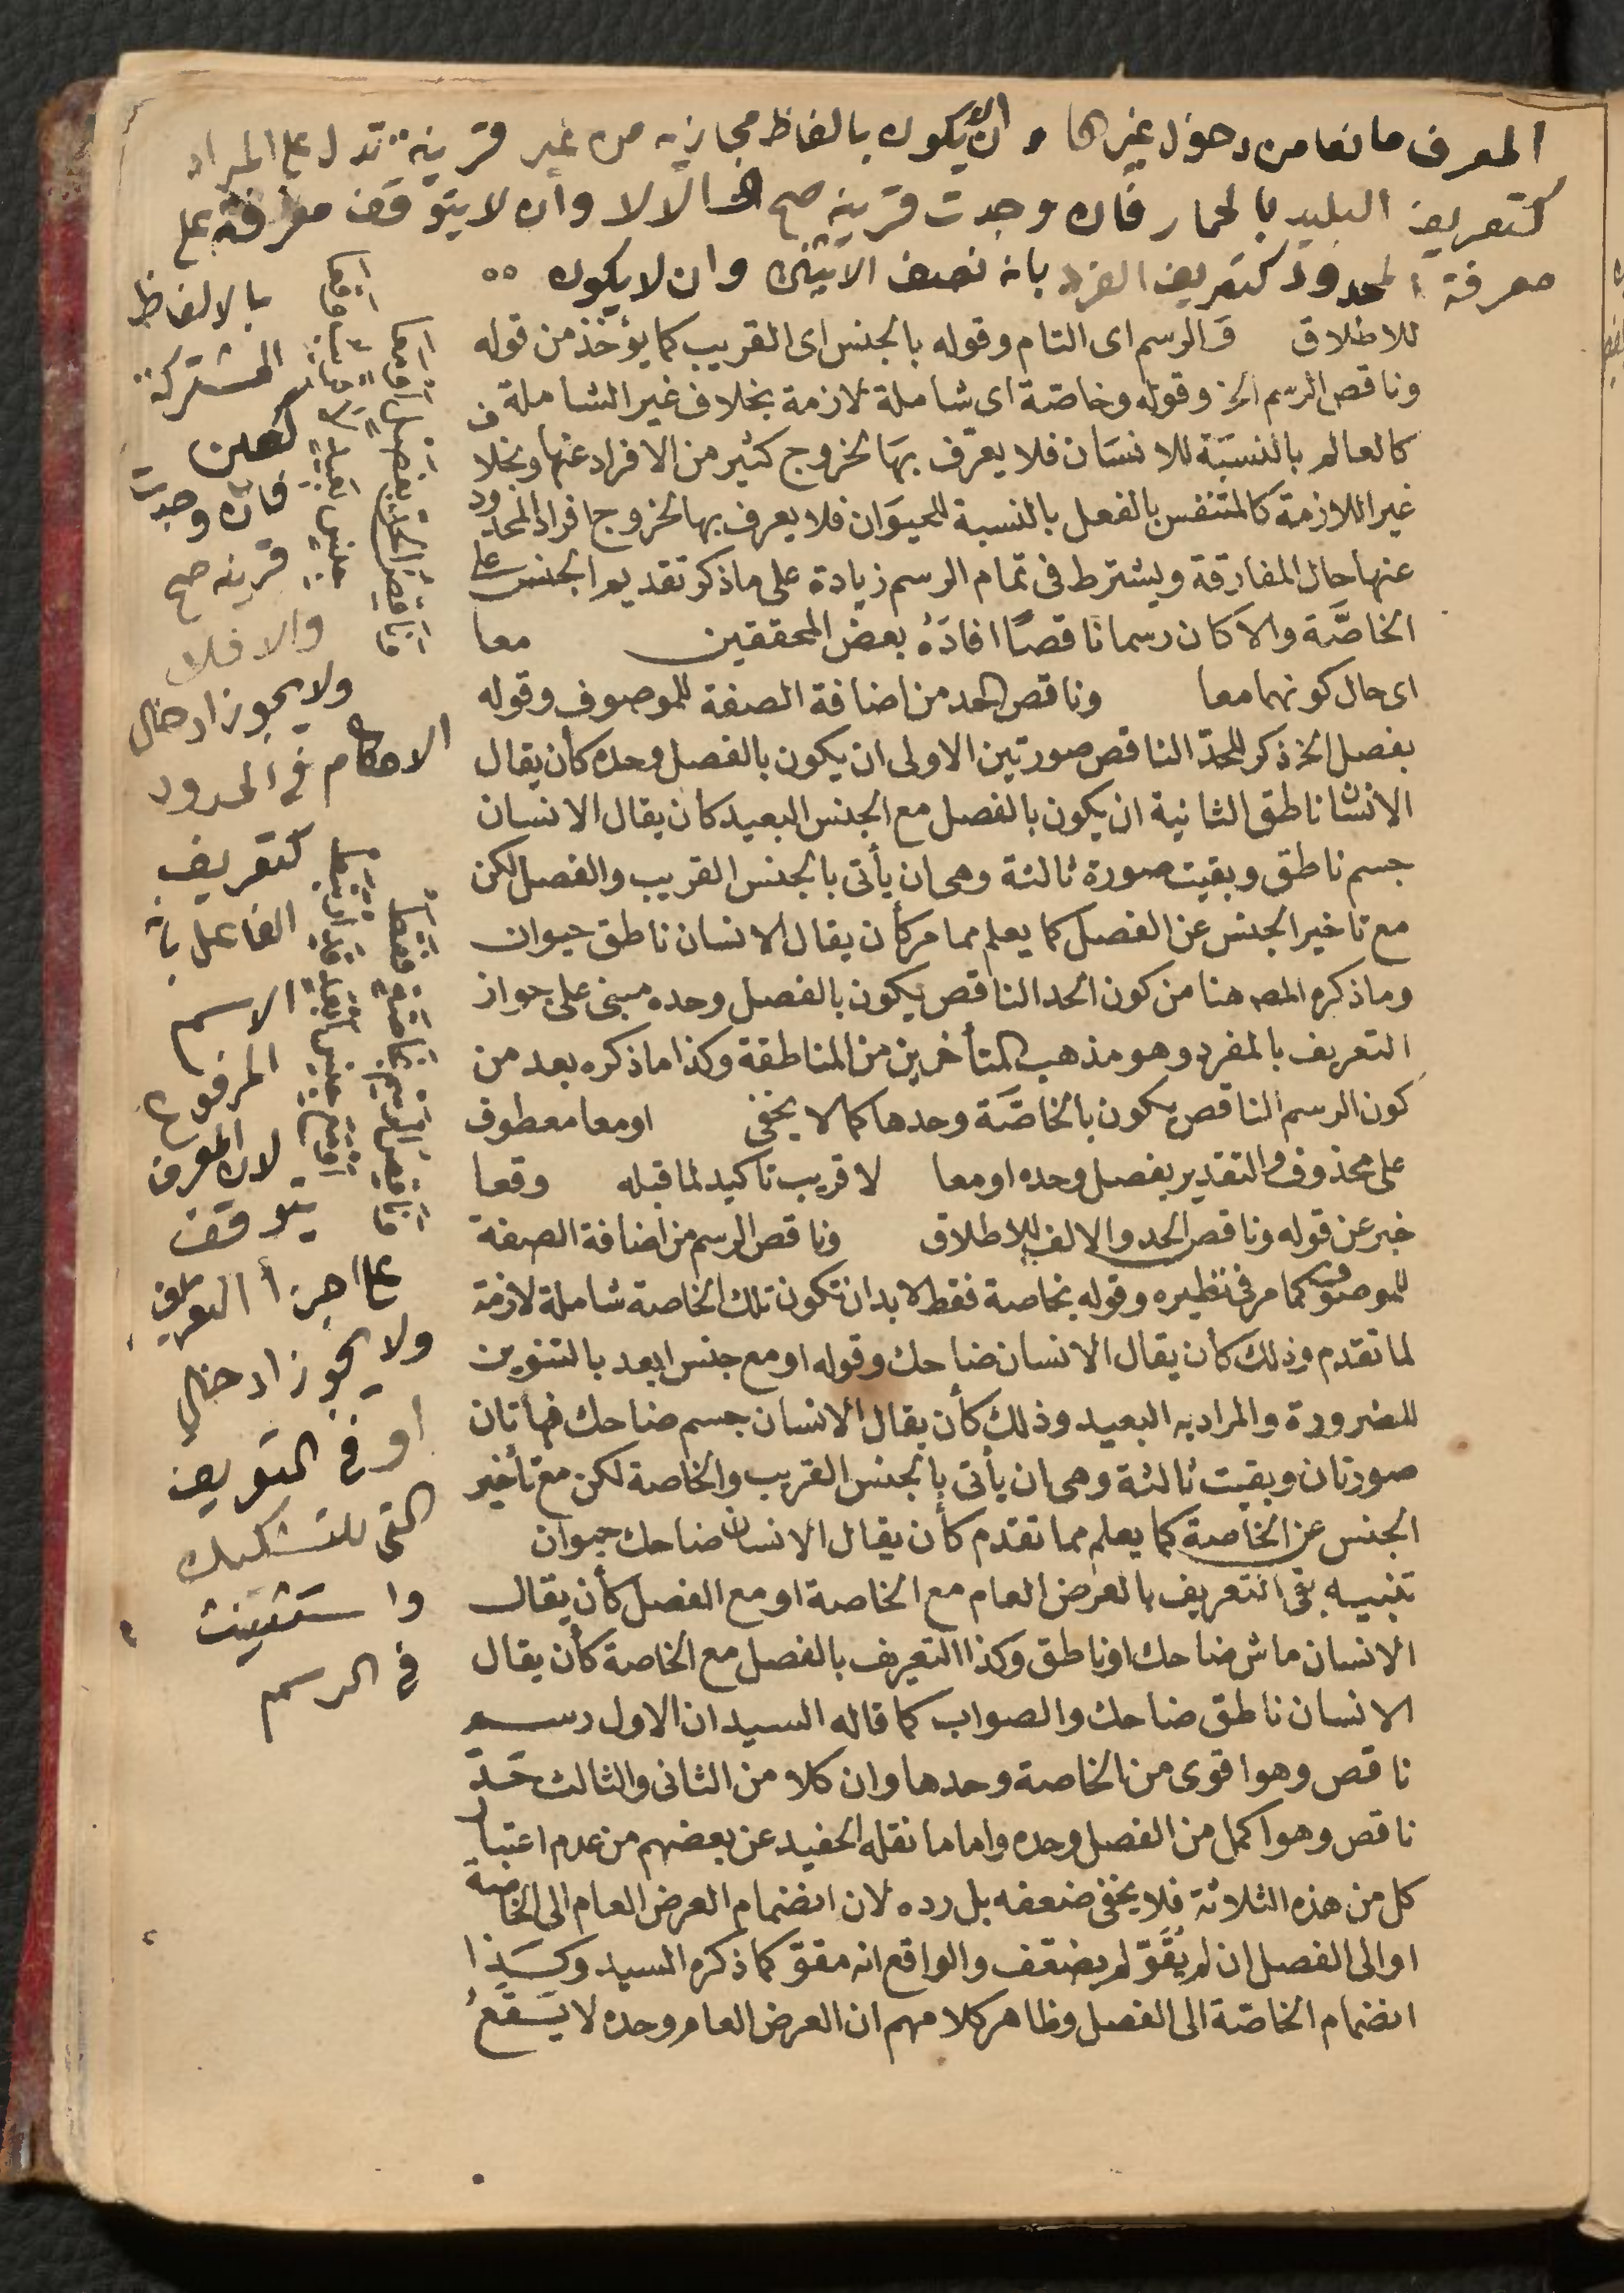 المعرف مانعا من دخول غيرها وان لا يكون بالفاظ مجازية من غير قرينة تدل على المراد
كتعريف البليد بالحمار فان وجدت قرينه صح والا لا وان لا يتوقف معرفته على
معرفة المحدود كتعريف الفرد بانه نصف الاثنين وان لا يكون
للاطلاق والرسم اى التام وقوله بالجنس اى القريب كما يؤخذ من قوله
وناقص الرسم الخ وقوله وخاصة اى شاملة لازمة بخلاف غير الشاملة
كالعالم بالنسبة للانسان فلا يعرف بها لخروج كثير من الافراد عنها وبخلاف
غير اللازمة كالمتنفس بالفعل بالنسبة للحيوان فلا يعرف بها لخروج افراد المحدود
عنها حال المفارقة ويشترط فى تمام الرسم زيادة على ما ذكر تقديم الجنس على
الخاصَّة والا كان رسما ناقصًا افادَهُ بعض المحققين معا
اى حال كونهما معا وناقص الحد من اضافة الصفة للموصوف وقوله
بفصل الخ ذكر للحدّ الناقص صورتين الاولى ان يكون بالفصل وحده كأن يقال
الانسان ناطق الثانية ان يكون بالفصل مع الجنس البعيد كأن يقال الانسان
جسم ناطق وبقيت صورة ثالثة وهى ان يأتى بالجنس القريب والفصل لكن
مع تاخير الجنس عن الفصل كما يعلم مما مر كأن يقال الانسان ناطق حيوان
وما ذكره المصـ هنا من كون الحد الناقص يكون بالفصل وحده مبنى على جواز
التعريف بالمفرد وهو مذهب المتأخرين من المناطقة وكذا ما ذكره بعد من
كون الرسم الناقص يكون بالخاصَّة وحدها كما لا يخفى او معا معطوف
على محذوف والتقدير بفصل وحده او معا لا قريب تاكيد لما قبله وقعا
خبر عن قوله وناقص الحد والالف للاطلاق وناقص الرسم من اضافة الصفة
للموصوف كما مر فى نظيره وقوله بخاصة فقط لا بد ان تكون تلك الخاصة شاملة لازمة
لما تقدم وذلك كأن يقال الانسان ضاحك وقوله او مع جنس ابعد بالتنوين
للضرورة والمراد به البعيد وذلك كأن يقال الانسان جسم ضاحك فهاتان
صورتان وبقيت ثالثة وهى ان يأتى بالجنس القريب والخاصة لكن مع تأخير
الجنس عن الخاصة كما يعلم مما تقدم كأن يقال الانسان ضاحك حيوان
تنبيه بقى التعريف بالعرض العام مع الخاصة او مع الفصل كأن يقال
الانسان ماش ضاحك او ناطق وكذا التعريف بالفصل مع الخاصة كأن يقال
الانسان ناطق ضاحك والصواب كما قاله السيد ان الاول رسم
ناقص وهو اقوى من الخاصة وحدها وان كلا من الثانى والثالث حَدّ
ناقص وهو اكمل من الفصل وحده واما ما نقله الحفيد عن بعضهم من عدم اعتبار
كل من هذه الثلاثة فلا يخفى ضعفه بل رده لان انضمام العرض العام الى الخاصة
او الى الفصل ان لم يُقَوّ لم يضعف والواقع انه مقوّ كما ذكره السيد وكَذا
انضمام الخاصّة الى الفصل وظاهر كلامهم ان العرض العام وحده لا يقع
بالالفاظ
المشتركة
كعين
فان وجدت
قرينه صح
والا فلا
ولا يجوز ادخال
الاحكام فى الحدود
كتعريف
الفاعل بانه
الاسم
المرفوع
لان المعرف
يتوقف
على اجزأ التعريف
ولا يجوز ادخال
او فى التعريف
التى للتشكيك
واستثنيت
فى الرسم
وناقص الحد بفصل او معا
جنس بعيد لا قريب وقعا
وناقص الرسم بخاصة فقط
او مع جنس ابعد قد ارتبط